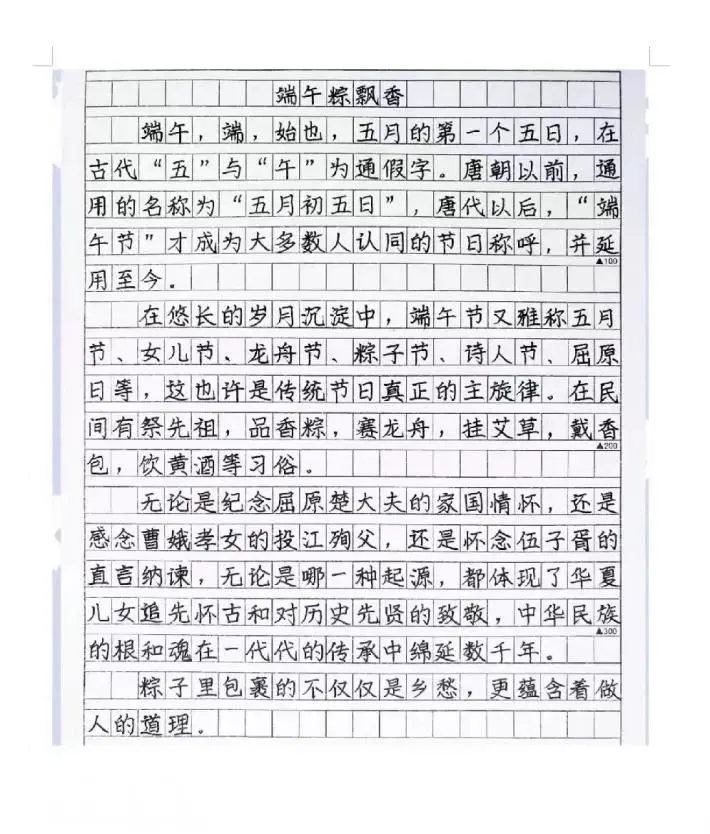 端午粽飘香
端午，端，始也，五月的第一个五日，在
古代“五”与“午”为通假字。唐朝以前，通
用的名称为“五月初五日”，唐代以后，“端
午节”才成为大多数人认同的节日称呼，并延
▲100
用至今。
在悠长的岁月沉淀中，端午节又雅称五月
节、女儿节、龙舟节、粽子节、诗人节、屈原
日等，这也许是传统节日真正的主旋律。在民
间有祭先祖，品香粽，赛龙舟，挂艾草，戴香
▲200
包，饮黄酒等习俗。
无论是纪念屈原楚大夫的家国情怀，还是
感念曹娥孝女的投江殉父，还是怀念伍子胥的
直言纳谏，无论是哪一种起源，都体现了华夏
儿女追先怀古和对历史先贤的致敬，中华民族
▲300
的根和魂在一代代的传承中绵延数千年。
粽子里包裹的不仅仅是乡愁，更蕴含着做
人的道理。